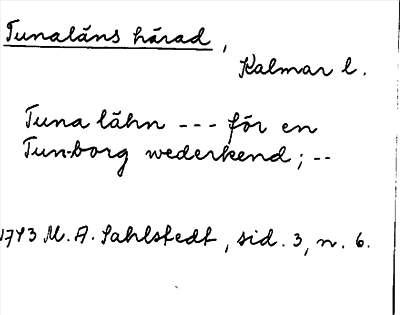 Tunaläns härad,
Kalmar l.
Tuna lähn --- för en
Tun-borg wederkend; --
1743 M. A. Sahlstedt, sid. 3, n. 6.